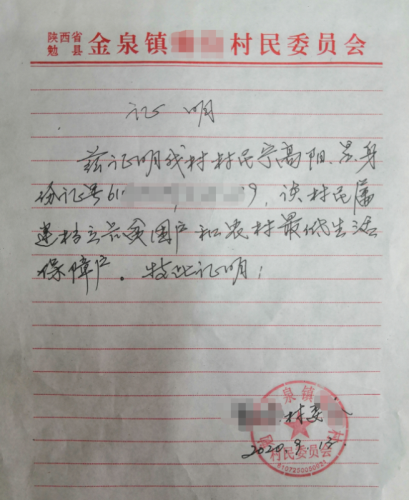 陕西省
勉 县 金泉镇 村民委员会
证 明
兹证明我村村民宁高阳,其身
份证号61 9,该村民属
建档立卡贫困户和农村最低生活
保障户。特此证明!
泉镇
村委
2020.9.12
村民委员会